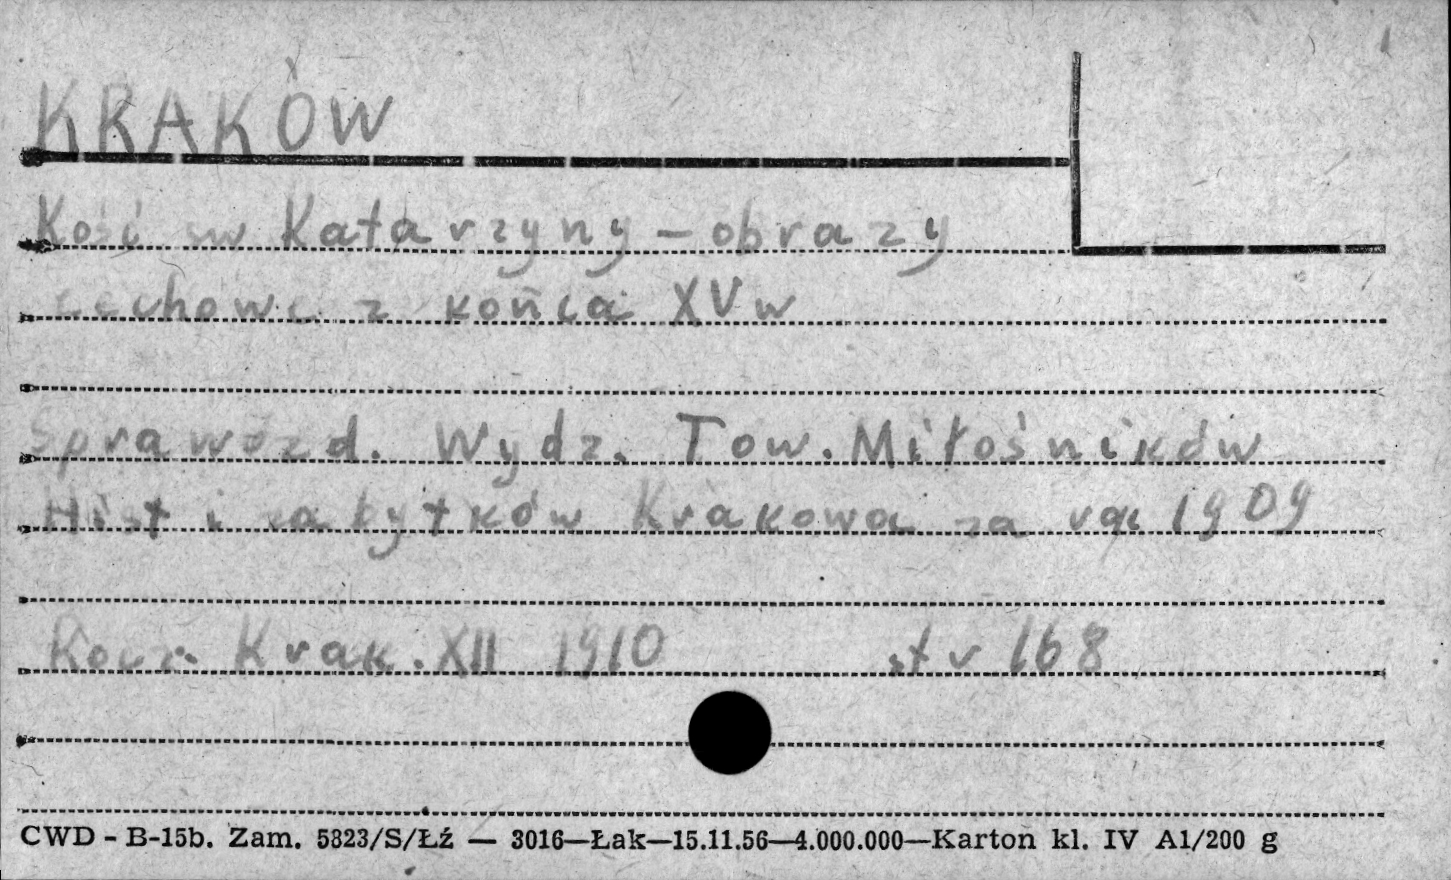 KRAKÓW
Kość św Katarzyny – obrazy
cechowe z końca XV w
Sprawozd. Wydz. Tow. Miłośników
Hist i zabytków Krakowa za rok 1909
Rocz. Krak. XII 1910 str 168
CWD - B-15b. Zam. 5823/S/Łź — 3016—Łak—15.11.56—4.000.000—Karton kl. IV A1/200 g